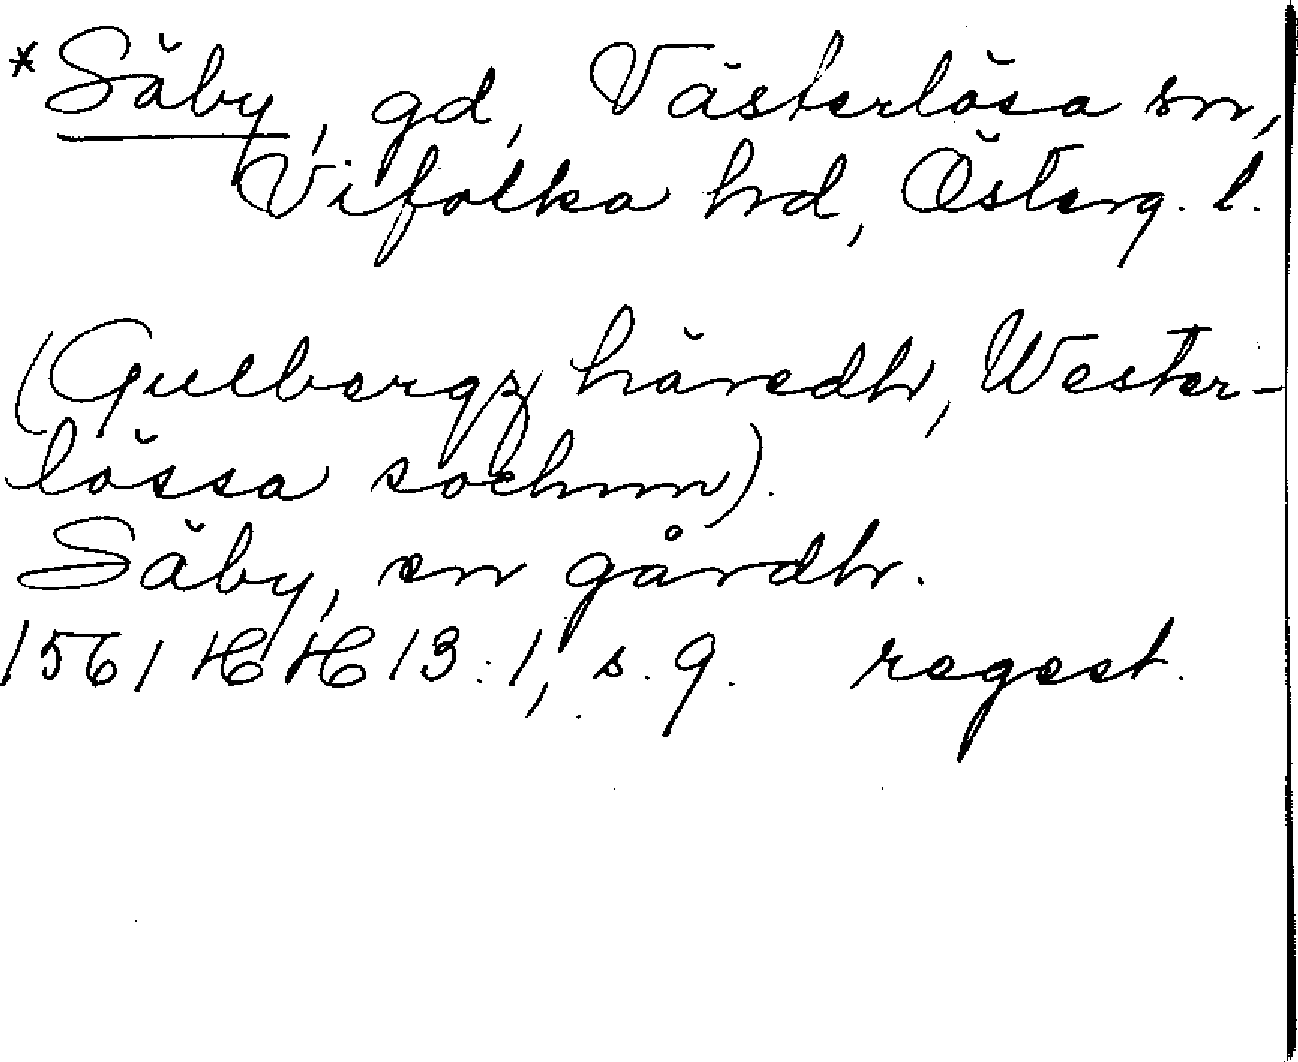 * Säby, gd, Västerlösa sn,
Vifolka hd, Österg. l.
(Gulbergz häredh, Wester-
lössa sochnn).
Säby, en gårdh.
1561 HH 13:1, s. 9. regest.